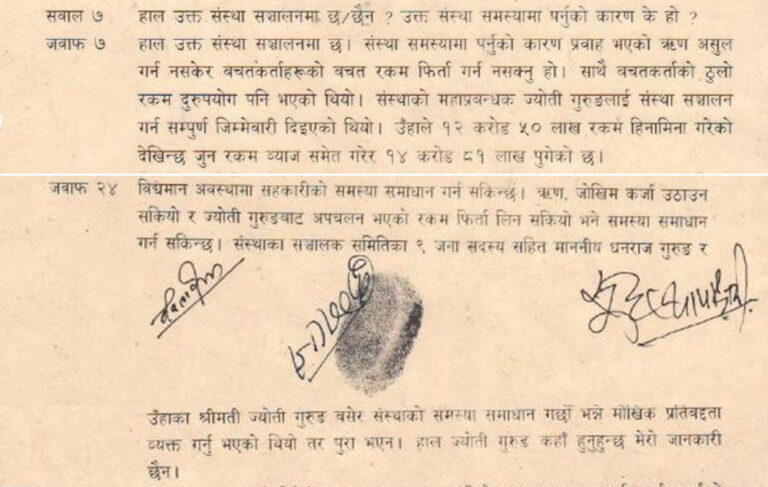 सवाल ७ हाल उक्त संस्था सञ्चालनमा छ/छैन ? उक्त संस्था समस्यामा पर्नुको कारण के हो ?
जवाफ ७ हाल उक्त संस्था सञ्चालनमा छ। संस्था समस्यामा पर्नुको कारण प्रवाह भएको ऋण असुल
गर्न नसकेर बचतकर्ताहरूको बचत रकम फिर्ता गर्न नसक्नु हो। साथै बचतकर्ताको ठुलो
रकम दुरुपयोग पनि भएको थियो। संस्थाको महाप्रबन्धक ज्योती गुरुङलाई संस्था सञ्चालन
गर्न सम्पुर्ण जिम्मेवारी दिइएको थियो। उँहाले १२ करोड ५० लाख रकम हिनामिना गरेको
देखिन्छ जुन रकम व्याज समेत गरेर १४ करोड ८१ लाख पुगेको छ।
जवाफ २४ विद्यमान अवस्थामा सहकारीको समस्या समाधान गर्न सकिन्छ। ऋण, जोखिम कर्जा उठाउन
सकियो र ज्योती गुरुङबाट अपचलन भएको रकम फिर्ता लिन सकियो भने समस्या समाधान
गर्न सकिन्छ। संस्थाका सञ्चालक समितिका ९ जना सदस्य सहित माननीय धनराज गुरुङ र
उँहाका श्रीमती ज्योती गुरुङ बसेर संस्थाको समस्या समाधान गर्छौं भन्ने मौखिक प्रतिवद्दता
व्यक्त गर्नु भएको थियो तर पुरा भएन। हाल ज्योती गुरुङ कहाँ हुनुहुन्छ मेरो जानकारी
छैन।